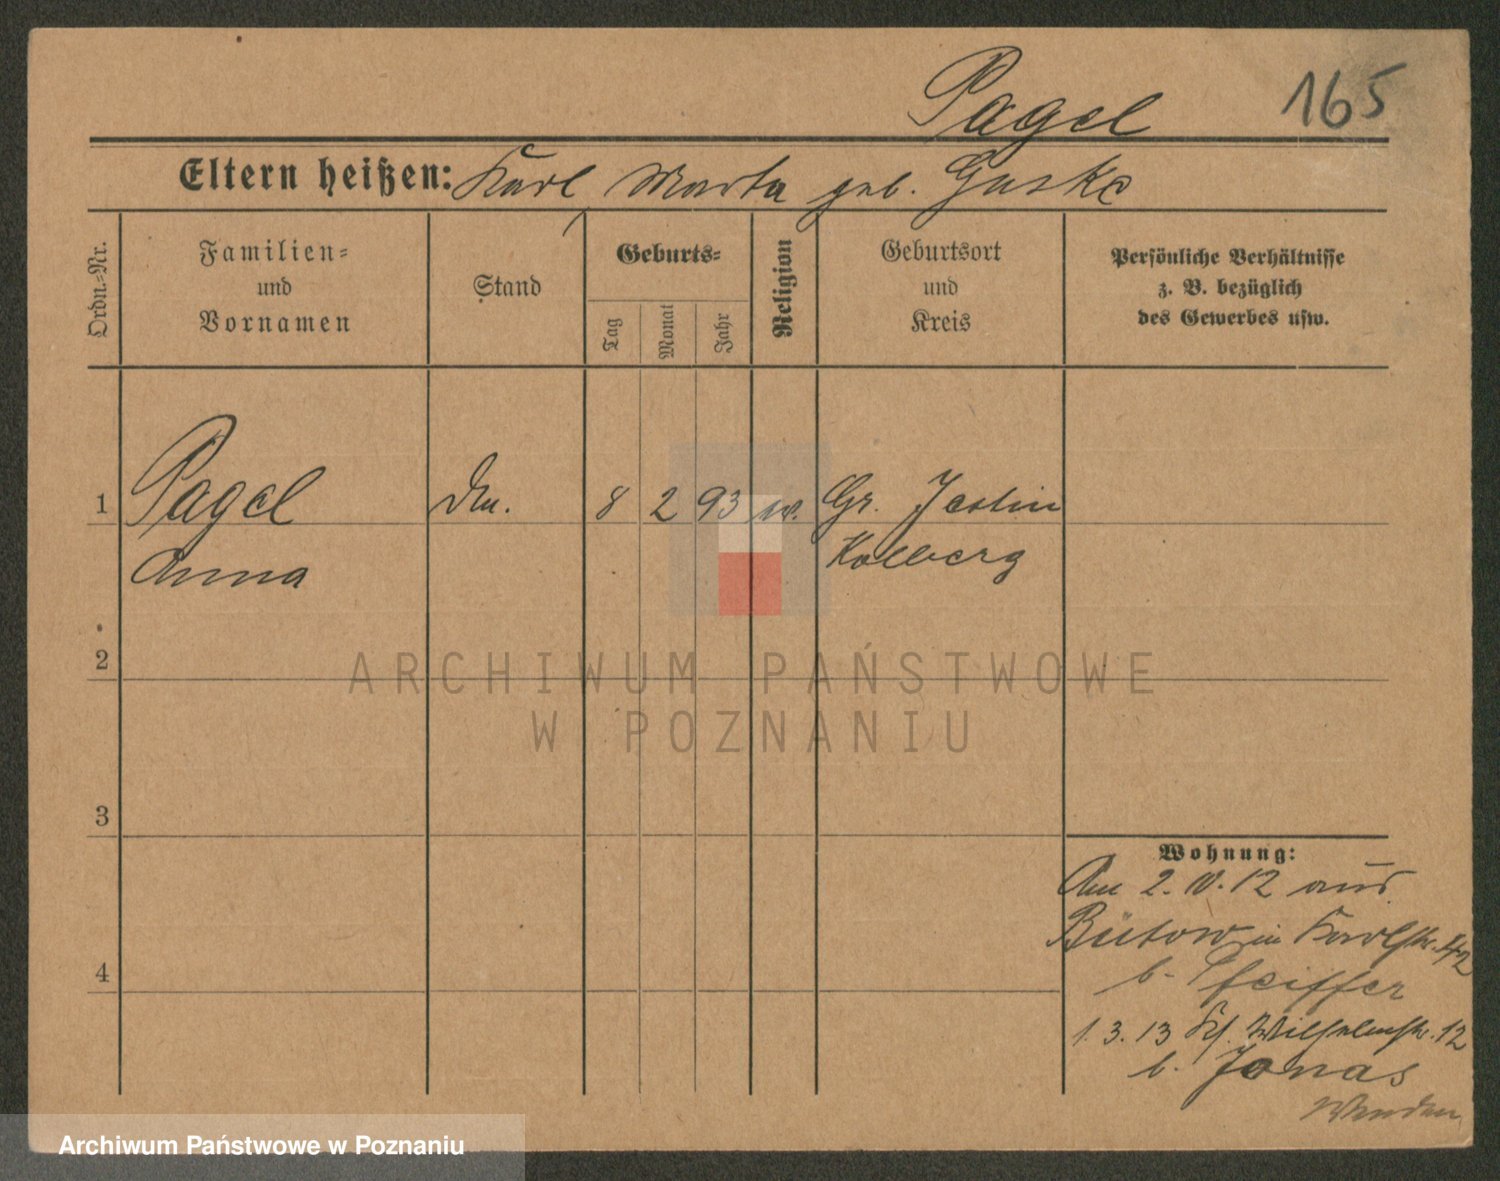 Pagel 165
Eltern heißen: Karl, Marta geb. Guske
Ordn.-Nr.
Familien-
und
Vornamen
Stand
Geburts-
Tag
Monat
Jahr
Religion
Geburtsort
und
Kreis
Persönliche Verhältnisse
z. B. bezüglich
des Gewerbes usw.
1 Pagel 8 2 93 Gr. Jestin
Anna Kolberg
2
ARCHIWUM PAŃSTWOWE
W POZNANIU
3
Wohnung:
Am 2. IV. 12 aus
Bütow in Karlstr. 42
4
b. Pfeiffer
1. 3. 13 Kl. Wilhelmstr. 12
b. Jonas
Wenden
Archiwum Państwowe w Poznaniu